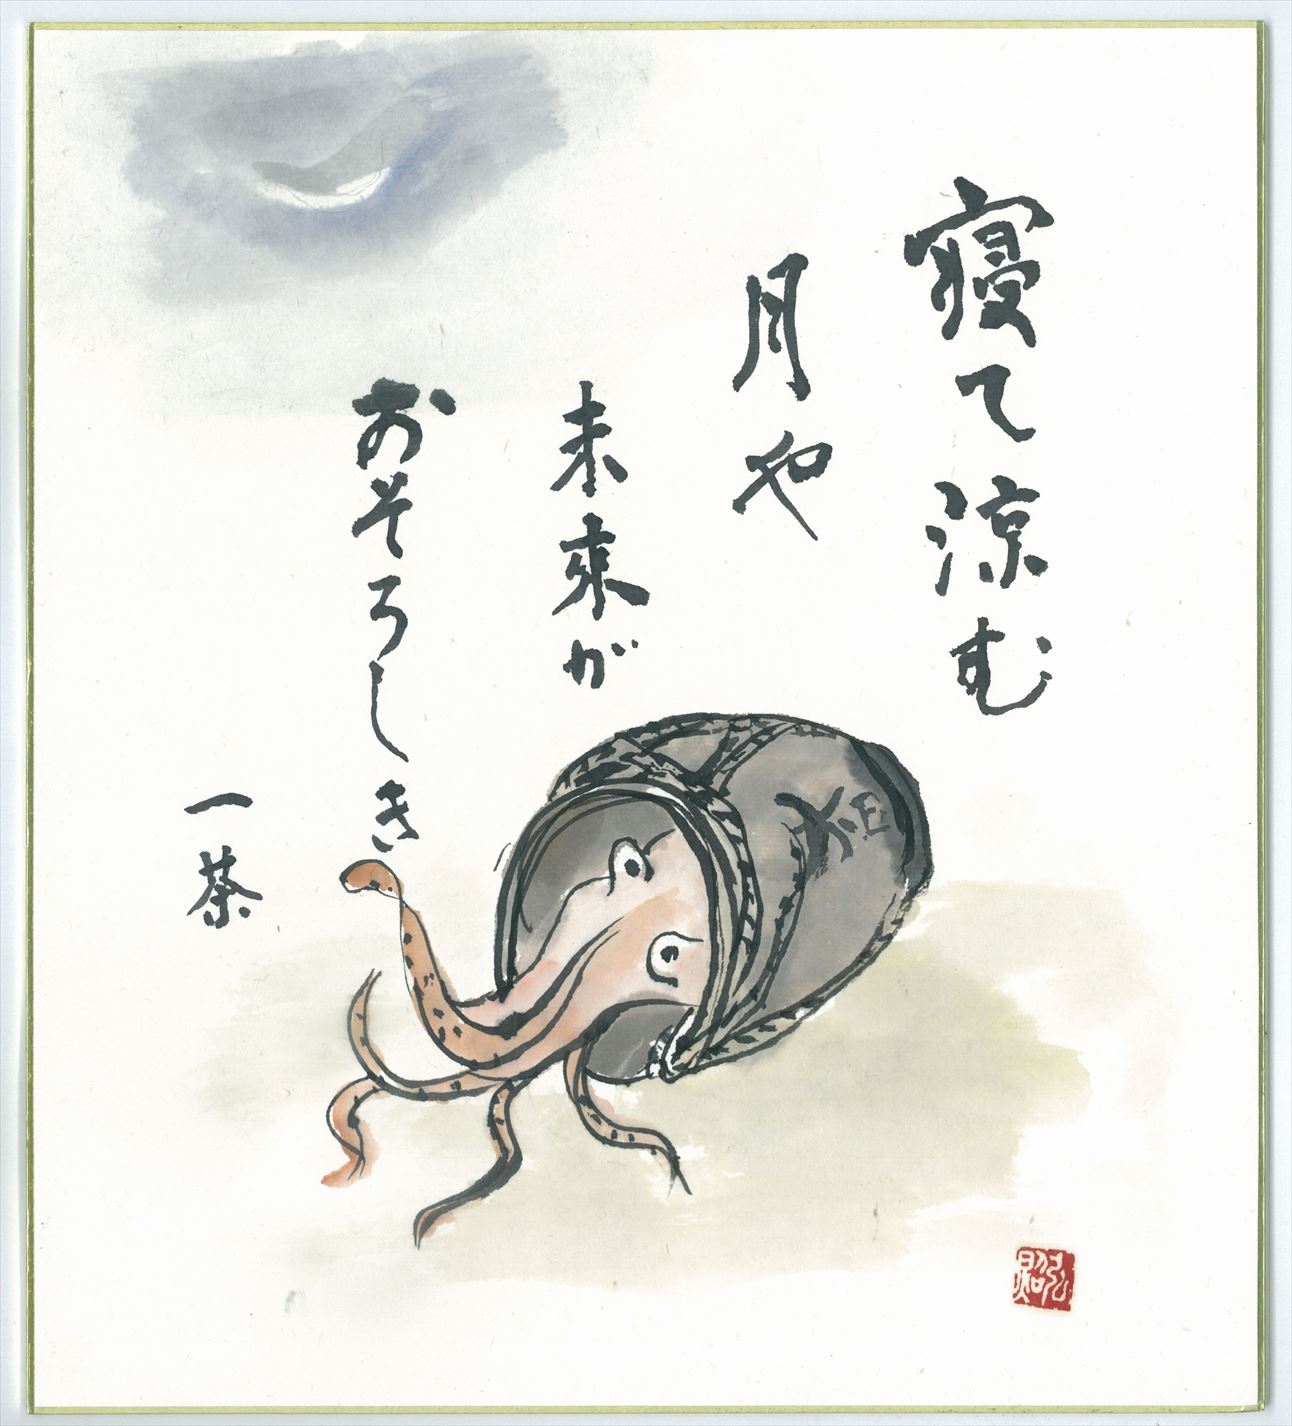 寝て涼む
月や
未来が
おそろしき
一茶